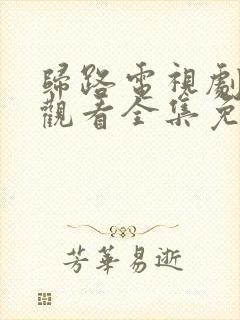 歸路電視劇
觀看全集免
芳華易逝